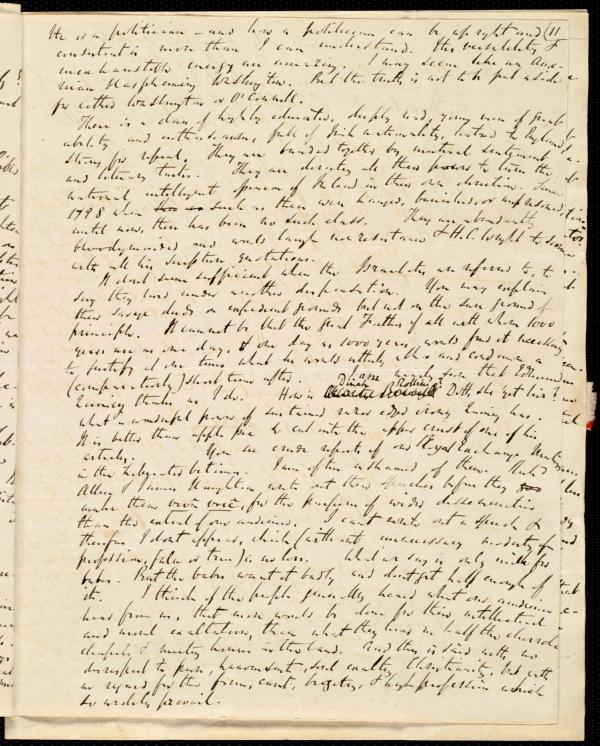 He is a politician - and how a politician can be upright and (11
consistent is more than I can understand. His versatility &
inexhaustible energy are amazing. I may seem like an Ame-
rican blaspheming Washington. But the truth is not to be put aside
for either Washington or O'Connell.
There is a class of highly educated, deeply read, young men of great
ability and enthusiasm, full of Irish nationality, hatred to England,
strong for repeal. They are banded together by mutual sentiment
and literary tastes. They are directing all their powers to turn the
national intelligent opinion of Ireland in their own direction. Since
1798 when such as them were hanged, banished, or imprisoned
until now, there has been no such class. They are abundantly
bloodyminded and would laugh nonresistance & H.C. Wright to scorn
with all his scripture quotations.
It don't seem sufficient when the Israelites are referred to, to
say they lived under another dispensation. You may explain
their savage deeds on expedient grounds but not on the sure ground of
principle. It cannot be that the great Father of all with whom 1000
years are as one day, & one day as 1000 years, would find it necessary
to justify at one time what he would utterly abhor and condemn a
(comparatively) short time after. I am nearly sure that Edmund
Quincy thinks as I do. How is Dinah Rollins? Did she get him?
What a wonderful power of sustained Edmund Quincy has.
It is better than apple pie to cut into the upper crust of one of his
articles. You see crude reports of our Royal Exchange Meetings
in the I am often ashamed of them. That
Allen & James Haughton write out their speeches before they
make them vivâ voce, for the purpose of wider dissemination
than the extent of our audience. I can't write out a speech &
therefore I don't appear, which (without unnecessary modesty of
profession, false or true) is no loss. What we say is only milk for
babes. But the babes want it badly and don't get half enough of
it. I think if the people generally heard what our audience
hear from us, that more would be done for their intellectual
and moral exaltation, than what they hear in half the churches
chapels & meeting houses in the land. And this is said with no
disrespect to pure, benevolent, soul exalting Christianity, but with
no regard for the forms, cant, bigotry, & high profession which
so widely prevail.